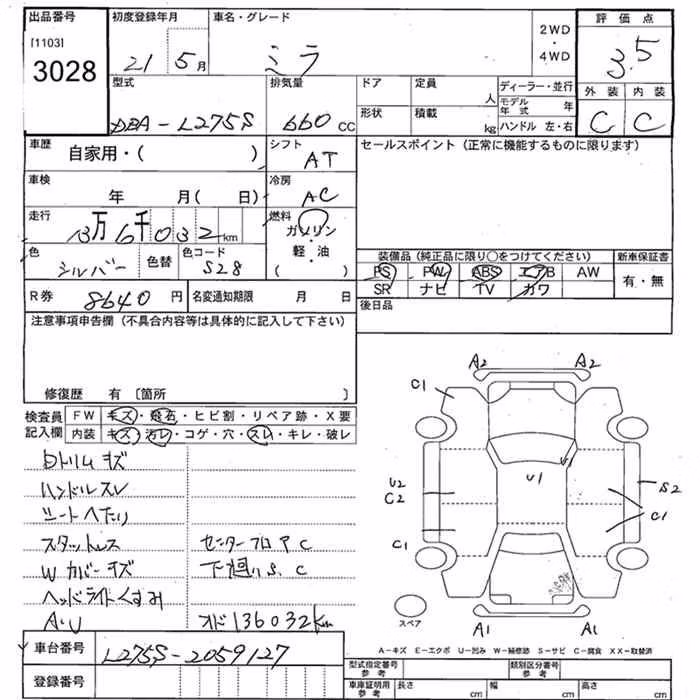 出品番号
[1103]
3028
初度登録年月
21 5月
車名・グレード
ミラ
2WD
・
4WD
評価点
3.5
外装 内装
C C
型式
DBA-L275S
排気量
660 CC
ドア
定員
人
形状
積載
kg
ディーラー・並行
モデル年式 年
ハンドル 左・右
車歴
自家用・( )
シフト
AT
セールスポイント(正常に機能するものに限ります)
車検
年 月( 日)
冷房
AC
走行
13万6千032km
燃料
ガソリン
・
軽・油
( )
色
シルバー
色替
色コード
S28
装備品(純正品に限り○をつけてください)
新車保証書
PS PW ABS エアB AW
SR ナビ TV カワ
有・無
R券 8640 円
名変通知期限 月 日
後日品
注意事項申告欄(不具合内容等は具体的に記入して下さい)
修復歴 有 〔箇所 〕
検査員
記入欄
FW キズ・飛石・ヒビ割・リペア跡・X要
内装 キズ・汚レ・コゲ・穴・スレ・キレ・破レ
内トリムキズ
ハンドルスレ
シートへたり
スタットレス
センターフロアC
Wカバーキズ
下廻りS.C
ヘッドライトくすみ
A・U
オド136032km
A2 A2
C1
U1
U1
U2
C2
S2
C1
C1
スペア
A1 A1
A-キズ E-エクボ U-凹み W-補修跡 S-サビ C-腐食 XX-取替済
車台番号
L275S-2059127
登録番号
型式指定番号
参考
類別区分番号
参考
車庫証明用
参考
長さ cm
幅 cm
高さ cm